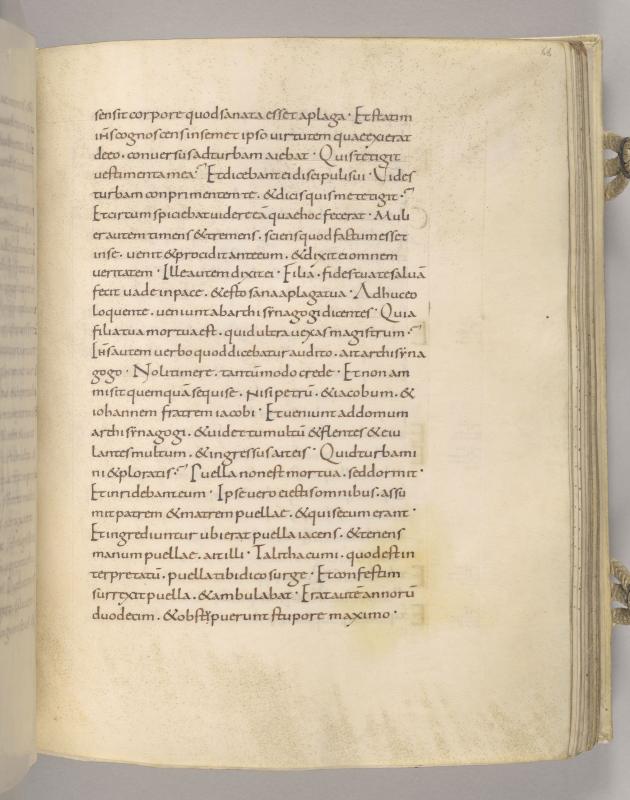 66
sensit corpore quod sanata esset a plaga · Et statim
ihs cognoscens in semet ipso virtutem quae exierat
de eo · conversus ad turbam aiebat · Quis tetigit
vestimenta mea ·? Et dicebant ei discipuli sui · Vides
turbam conprimentem te · & dicis quis me tetigit ·?
Et circumspiciebat videre eā quae hoc fecerat · Muli
er autem timens & tremens · sciens quod factum esset
in se · venit & procidit ante eum · & dixit ei omnem
veritatem · Ille autem dixit ei · Filia · fides tua te salvā
fecit vade in pace · & esto sana a plaga tua · Adhuc eo
loquente · veniunt ab archisynagogi dicentes · Quia
filia tua mortua est · quid ultra vexas magistrum ·?
Ihs autem verbo quod dicebatur audito · ait archisyna
gogo · Noli timere · tantūmodo crede · Et non am
misit quemquā sequi se · nisi petrū · & iacobum · &
iohannem fratrem iacobi · Et veniunt ad domum
archisynagogi · & videt tumultū & flentes & eiu
lantes multum · & ingressus ait eis · Quid turbami
ni & ploratis ·? Puella non est mortua · sed dormit ·
Et inridebant eum · Ipse vero eiectis omnibus · assu
mit patrem & matrem puellae · & qui secum erant ·
Et ingrediuntur ubi erat puella iacens · & tenens
manum puellae · ait illi · Talitha cumi · quod est in
terpretatū · puella tibi dico surge · Et confestim
surrexit puella · & ambulabat · Erat autē annorū
duodecim · & obstipuerunt stupore maximo ·